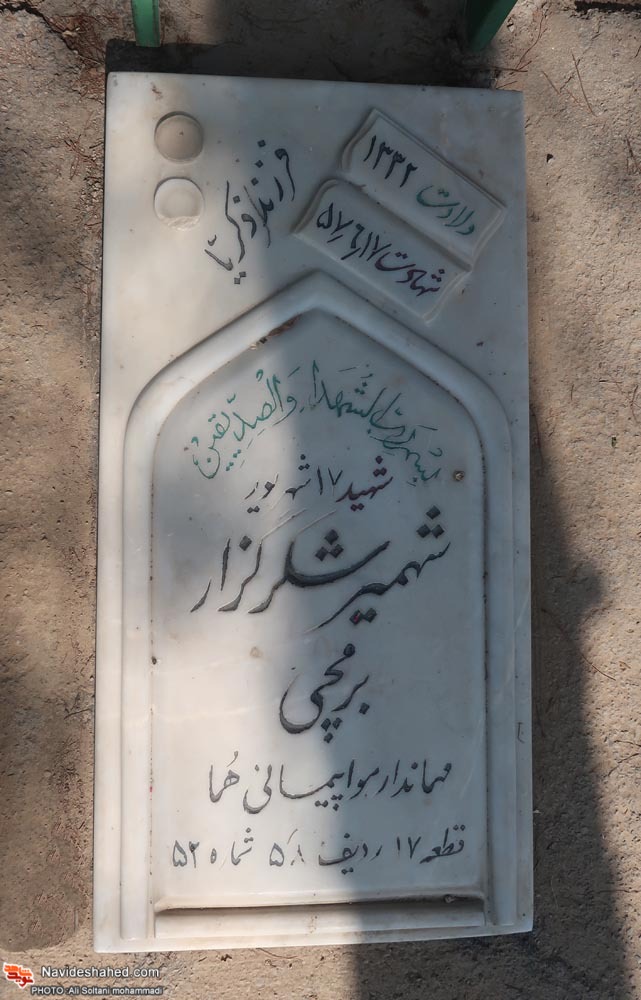 ولادت ۱۳۳۲
شهادت ۵۷٫۶٫۱۷
فرزند ذکریّا
بسم رب الشهداء والصدیقین
شهید ۱۷ شهریور
شهمیر شکرگزار
برمچی
مهماندار هواپیمائی هُما
قطعه ۱۷ ردیف ۵۸ شماره ۵۲
Navideshahed.com
PHOTO: Ali Soltani mohammadi